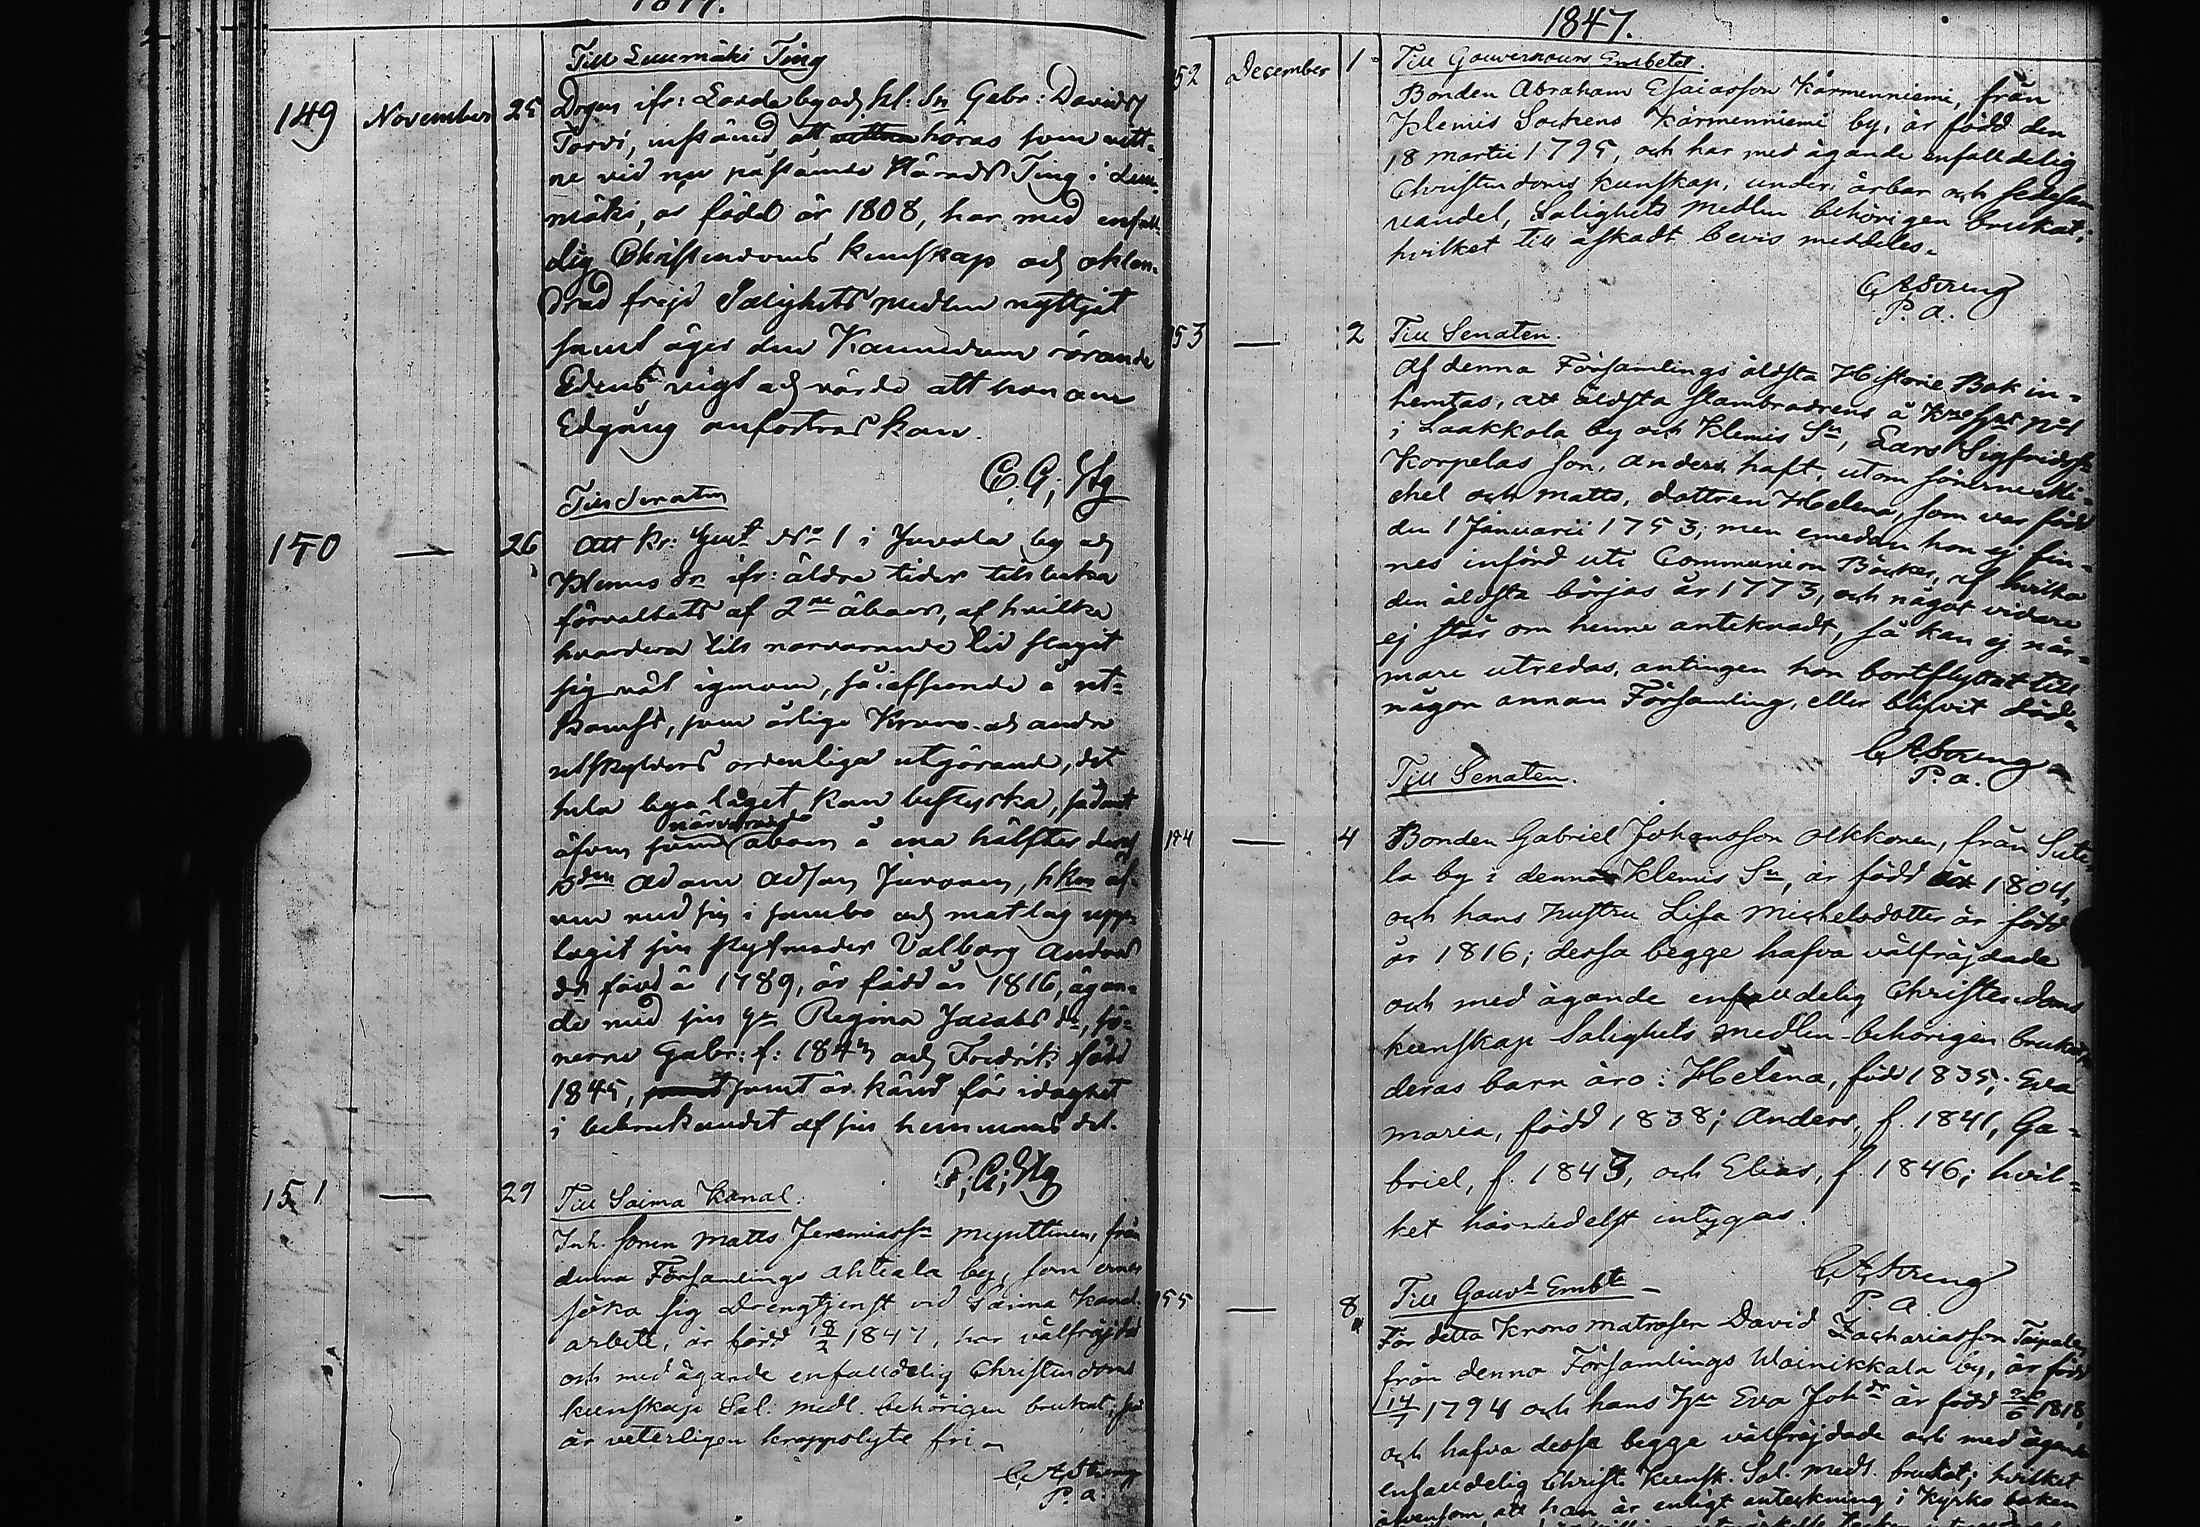 1847.
Till Luumäki Ting
149 November 25 Drgen ifr: byoch Kl: Sn Gabr: Davids
Torvi, instämd att höras som vitt=
ne vid nu påstående Härads Ting i Luu=
mäki, är född år 1808, har med enfal
dig Christendoms kunskap och oklan=
drad frejd Salighets medlen nyttjat
samt äger den Kännedom rörande
Edens vigt och värde att han om
Edgång anförtros kan.
C. A; Stg
Till Senaten
150 — 26 Att Kr: Hemt No 1 i Juvola by och
Klemis Sn ifr: äldre tider tillbaka
förvaltats af 2ne åboer, af hvilka
hvardera till närvarande tid slagit
sig väl igenom, så i afseende å ut=
komst, som årliga Krono- och andra
utskylders ordentliga utgörande, det
hela byalaget kan bestyrka, sådant
äfven som närvarande åboen å ena hälften deraf
Bden Adam Adsson Juvonen, hken äf=
ven med sig i sambo och matlag upp=
tagit sin styfmoder Valborg Anders
dr född år 1789, är född år 1816, ägan=
de med sin Hu Regina Jacobs dr, sö=
nerne Gabr: f: 1843 och Fredrik född
1845, samt är känd för idoghet
i bebrukandet af sin hemmans del.
C; A; Stg
151 — 29 Till Saima Kanal.
Inh. sonen Matts Jeremiass Myyttinen, från
denna Församlings Ahtiala by, som ernar
söka sig Drengtjenst vid Saima Kanal
arbete, är född 18/2 1847, har välfräjdad
och med ägande enfalldelig Christendoms
kunskap Sal. medl. behörigen brukat, så
är veterligen kroppslyte fri.
C. A. Streng
P. a.
1847.
52 December 1 Till Gouverneurs Embetet.
Bonden Abraham Esaiasson Kärmenniemi, från
Klemis Sockens Kärmenniemi by, är född den
18 Martii 1795, och har med ägande enfalldelig
Christendoms kunskap, under ärbar och sedesam
vandel, Salighets Medlen behörigen brukat;
hvilket till äskadt bevis meddeles.
C. A. Streng
P. a.
53 — 2 Till Senaten.
Af denna Församlings äldsta Historie Bok in=
hemtas, att äldsta stambrodrens å
i Laakkola by och Klemis Sn, Lars Sigfridss
Korpelas son, Anders haft, utom sönerne Mi=
chel och Matts, dottren Helena, som var född
den 1 Januarii 1753; men emedan hon ej fin=
nes införd uti Communion Böcker, af hvilka
den äldsta börjas år 1773, och något vidare
ej står om henne antecknadt, så kan ej när=
mare utredas, antingen hon bortflyttat till
någon annan Församling, eller blifvit död.
C. A. Streng
P. a.
Till Senaten.
154 — 4 Bonden Gabriel Johansson Olkkonen, från Sute=
la by i denna Klemis Sn, är född år 1804,
och hans hustru Lisa Michelsdotter är född
år 1816; dessa begge hafva välfräjdade
och med ägande enfalldelig Christendoms
kunskap Salighets medlen behörigen brukat;
deras barn äro: Helena, född 1835; Eva
Maria, född 1838; Anders, f. 1841, Ga=
briel, f. 1843, och Elias, f. 1846; hvil=
ket härmedelst intygas.
C. A. Streng
P. a.
155 — 8 Till Gouvs Embte
För detta Krons Matrosen David Zachariasson Taipale,
från denna Församlings Wainikkala by, är född
14/7 1794 och hans Hu Eva Johdr är född 1818;
och hafva dessa begge välfräjdade och med ägande
enfalldelig Christ. Kunsk. Sal. medl. brukat; hvilket
äfvensom att han är enligt anteckning i Kyrko boken